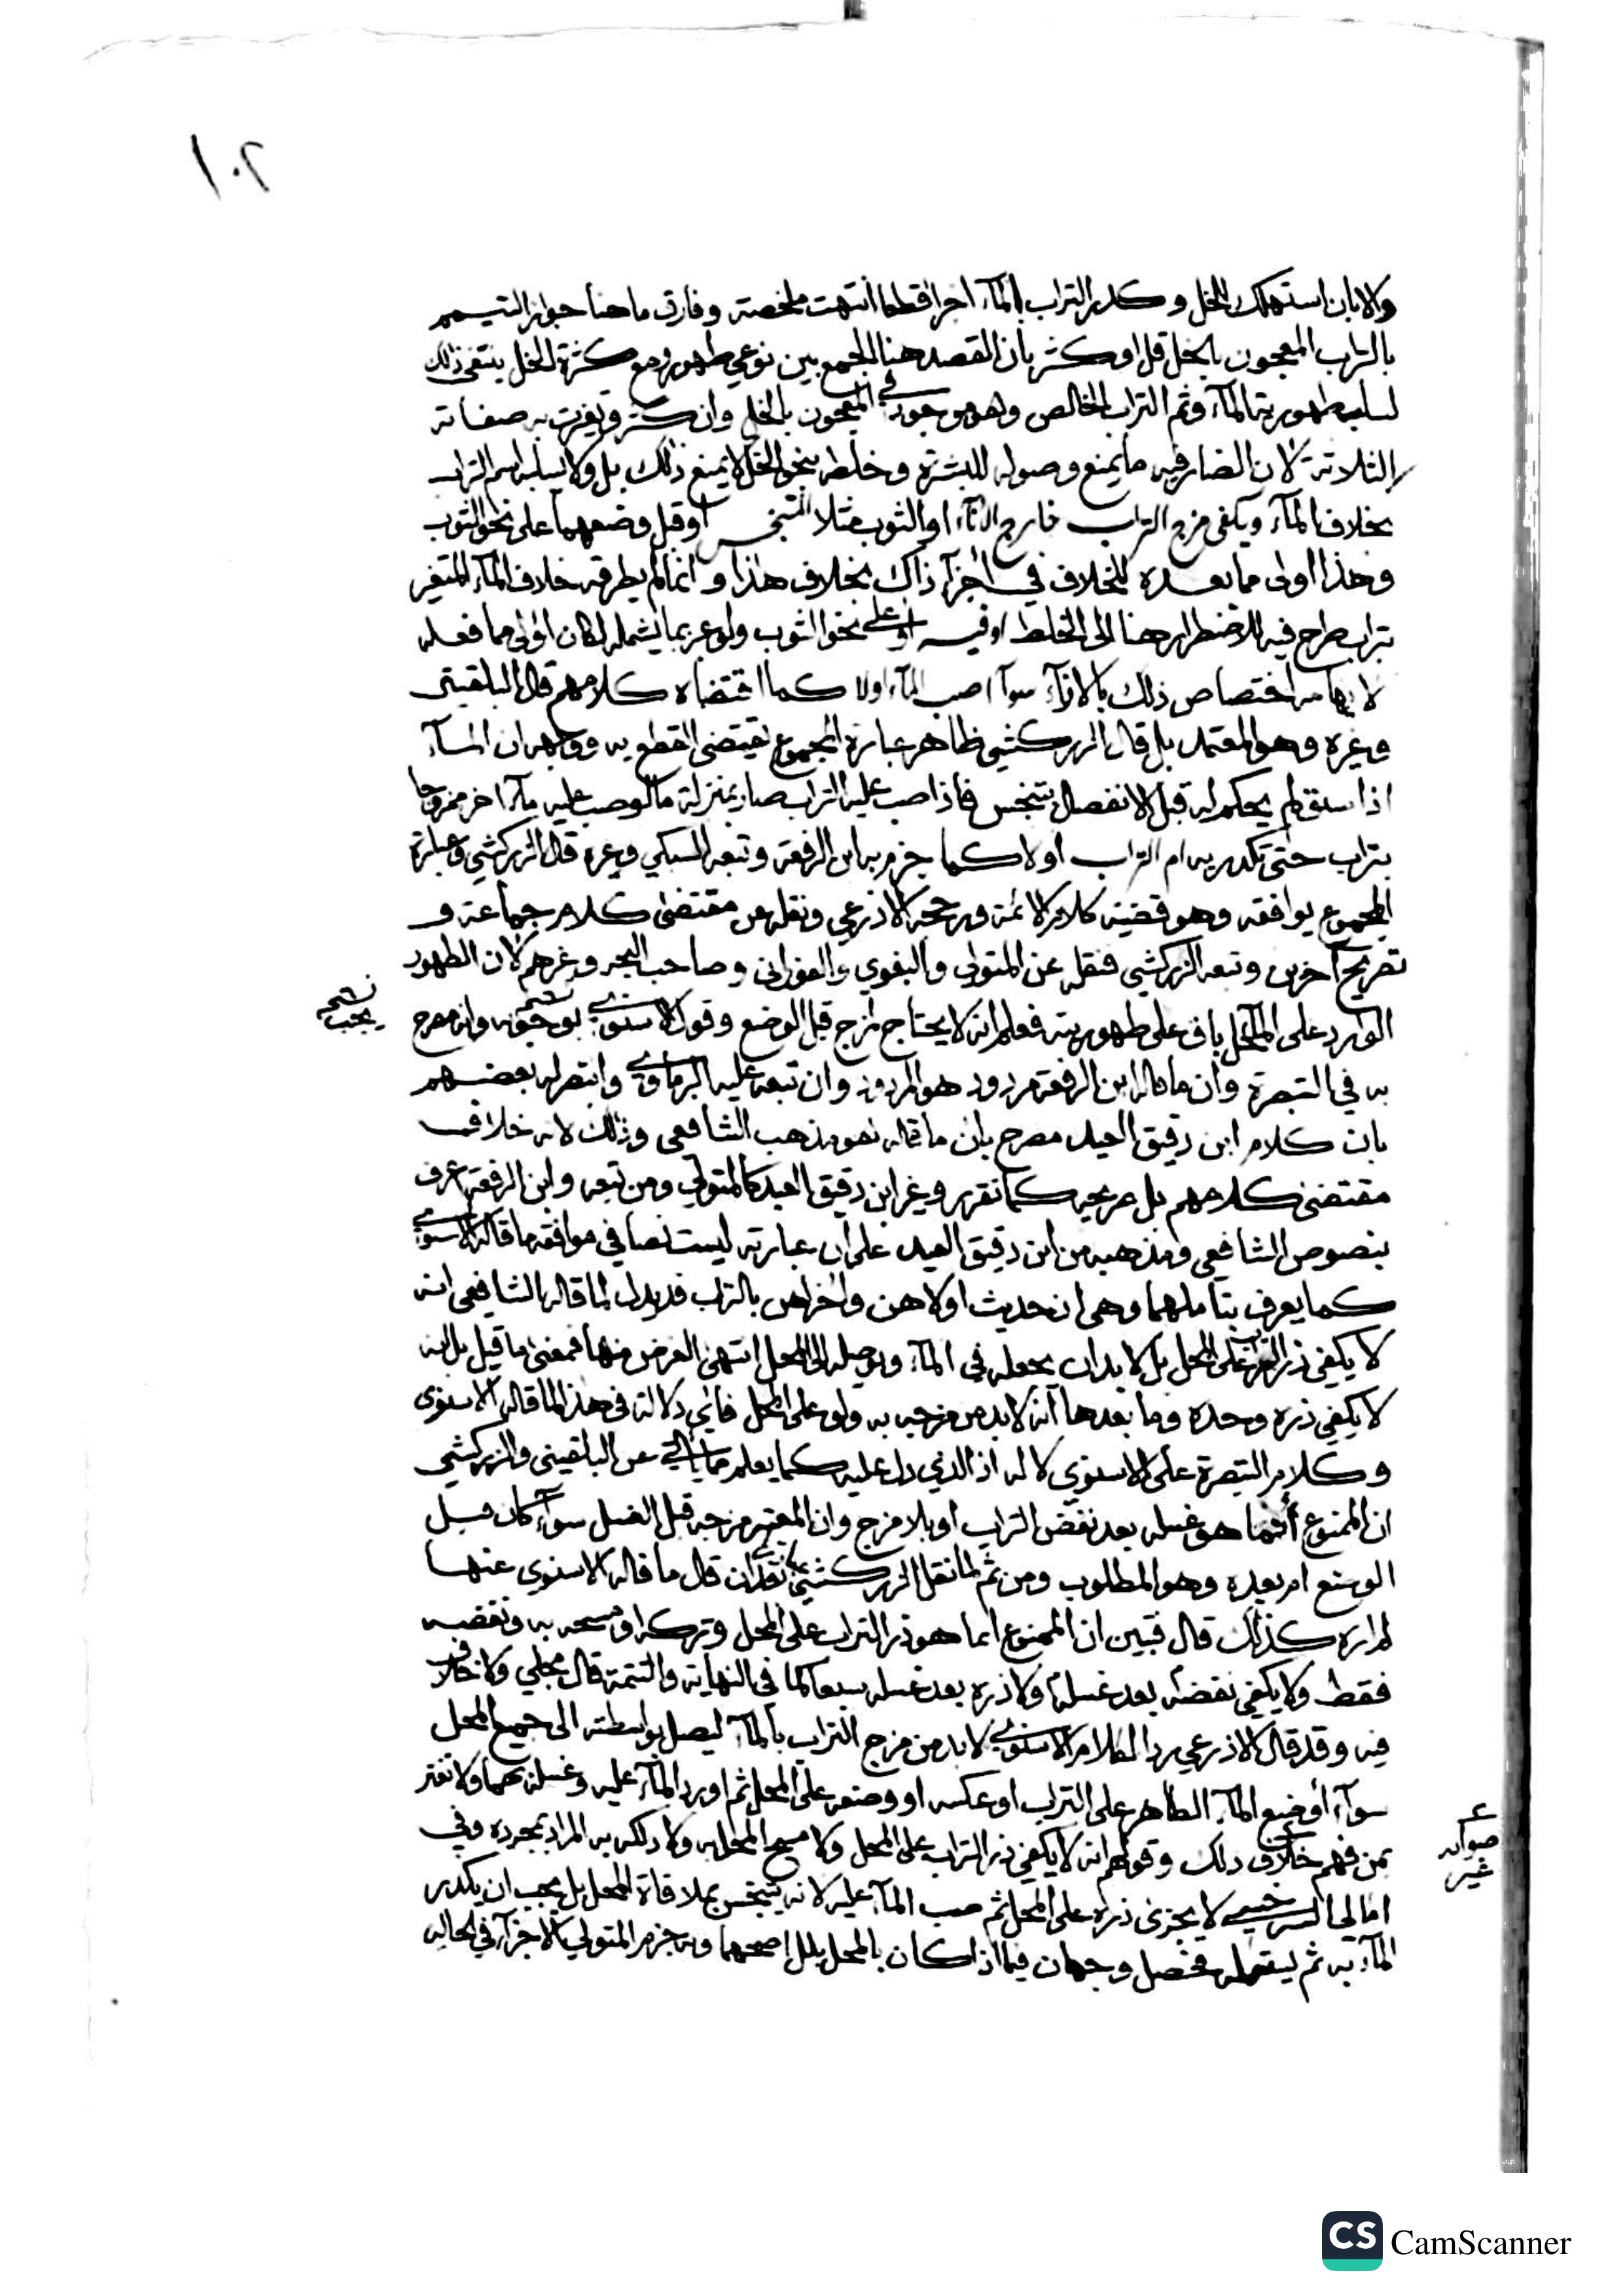 ١٠٢
والا بان استهلك الخل وكدر التراب الماء اجزا قطعا انتهت ملخصة وفارق ما هنا جواز التيمم
بالتراب المعجون بالخل قل او كثر بان القصد هنا الجمع بين نوعي طهور ومع كثرة الخل ينتفي ذلك
لسلب طهورية الماء وثم التراب الخالص وهو موجود في المعجون بالخل وان كثر وتغيرت به صفاته
الثلاثة لان الضار فيه ما يمنع وصوله للبشرة وخلطه بنحو الخل لا يمنع ذلك بل ولا يسلبه اسم التراب
بخلاف الماء ويكفي مزج التراب خارج الاناء او الثوب مثلا المتنجس او قبل وضعهما على نحو الثوب
وهذا اولى مما بعده للخلاف في اجزاء ذاك بخلاف هذا وانما لم يطرقه خلاف الماء المتغير
بتراب طرح فيه للاضطرار هنا الى الخلط او فيه او على نحو الثوب ولو عبر بما يشمله لكان اولى مما فعله
لايهامه اختصاص ذلك بالاناء سواء صب الماء اولا كما اقتضاه كلامهم قال البلقيني
وغيره وهو المعتمد بل قال الزركشي ظاهر عبارة المجموع تقتضي القطع به ووجهه ان الماء
اذا سبق لم يحكم له قبل الانفصال بتنجس فاذا صب عليه التراب صار بمنزلة ما لو صب عليه ماء اخر ممزوجا
بتراب حتى تكدر به ام التراب اولا كما جزم به ابن الرفعة وتبعه السبكي وغيره قال الزركشي وعبارة
المجموع يوافقه وهو قضية كلام الائمة ورجحه الاذرعي ونقله عن مقتضى كلام جماعة و
تصريح آخرين وتبعه الزركشي فنقله عن المتولي والبغوي والفوراني وصاحب البحر وغيرهم لان الطهور
الوارد على المحل باق على طهوريته فعلم انه لا يحتاج لمزج قبل الوضع وقول الاسنوي بوجوبه وانه صرح
نسخه يجب
به في التبصرة وان ما قاله ابن الرفعة مردود هو المردود وان تبعه عليه البرماوي وانتصر له بعضهم
بان كلام ابن دقيق العيد مصرح بان ما قاله هو مذهب الشافعي وذلك لانه خلاف
مقتضى كلامهم بل صريحه كما تقرر وغير ابن دقيق العيد كالمتولي ومن تبعه وابن الرفعة اعرف
بنصوص الشافعي ومذهبه من ابن دقيق العيد على ان عبارته ليست نصا في موافقة ما قاله الاسنوي
كما يعرف بتاملها وهي ان حديث اولاهن واخراهن بالتراب قد يدل لما قاله الشافعي انه
لا يكفي ذر التراب على المحل بل لا بد ان يجعله في الماء ويوصله الى المحل انتهى الغرض منها فمعنى ما قبل بل انه
لا يكفي ذره وحده وما بعدها انه لا بد من مزجه به ولو على المحل فاي دلالة في هذا لما قاله الاسنوي
وكلام التبصرة على الاسنوي لا له اذ الذي دل عليه كما يعلم مما ياتي عن البلقيني والزركشي
ان الممنوع انما هو غسله بعد نفض التراب او بلا مزج وان المعتبر مزجه قبل الغسل سواء كان قبل
الوضع ام بعده وهو المطلوب ومن ثم لما نقل الزركشي عبارتها بعد ان قال ما قاله الاسنوي عنها
لم اره كذلك قال فتبين ان الممنوع انما هو ذر التراب على المحل وتركه او مسحه به ونفضه
فقط ولا يكفي نفضه بعد غسله ولا ذره بعد غسله سبعا كما في النهاية والتتمة قال مجلي ولا خلاف
فيه وقد قال الاذرعي ردا لكلام الاسنوي لا بد من مزج التراب بالماء ليصل بواسطته الى جميع المحل
سواء اوضع الماء الطاهر على التراب او عكسه او وضعه على المحل ثم اورد الماء عليه وغسله بهما ولا تغتر
بمن فهم خلاف ذلك وقولهم انه لا يكفي ذر التراب على المحل ولا مسح المحل به ولا دلكه به المراد بمجرده وفي
صوابه غير
امالي السرخسي لا يجزئ ذره على المحل ثم صب الماء عليه لانه يتنجس بملاقاة المحل بل يجب ان يكدر
الماء به ثم يستعمله فحصل وجهان فيما اذا كان بالمحل بلل اصحهما وبه جزم المتولي الاجزاء في الحالة
CS CamScanner